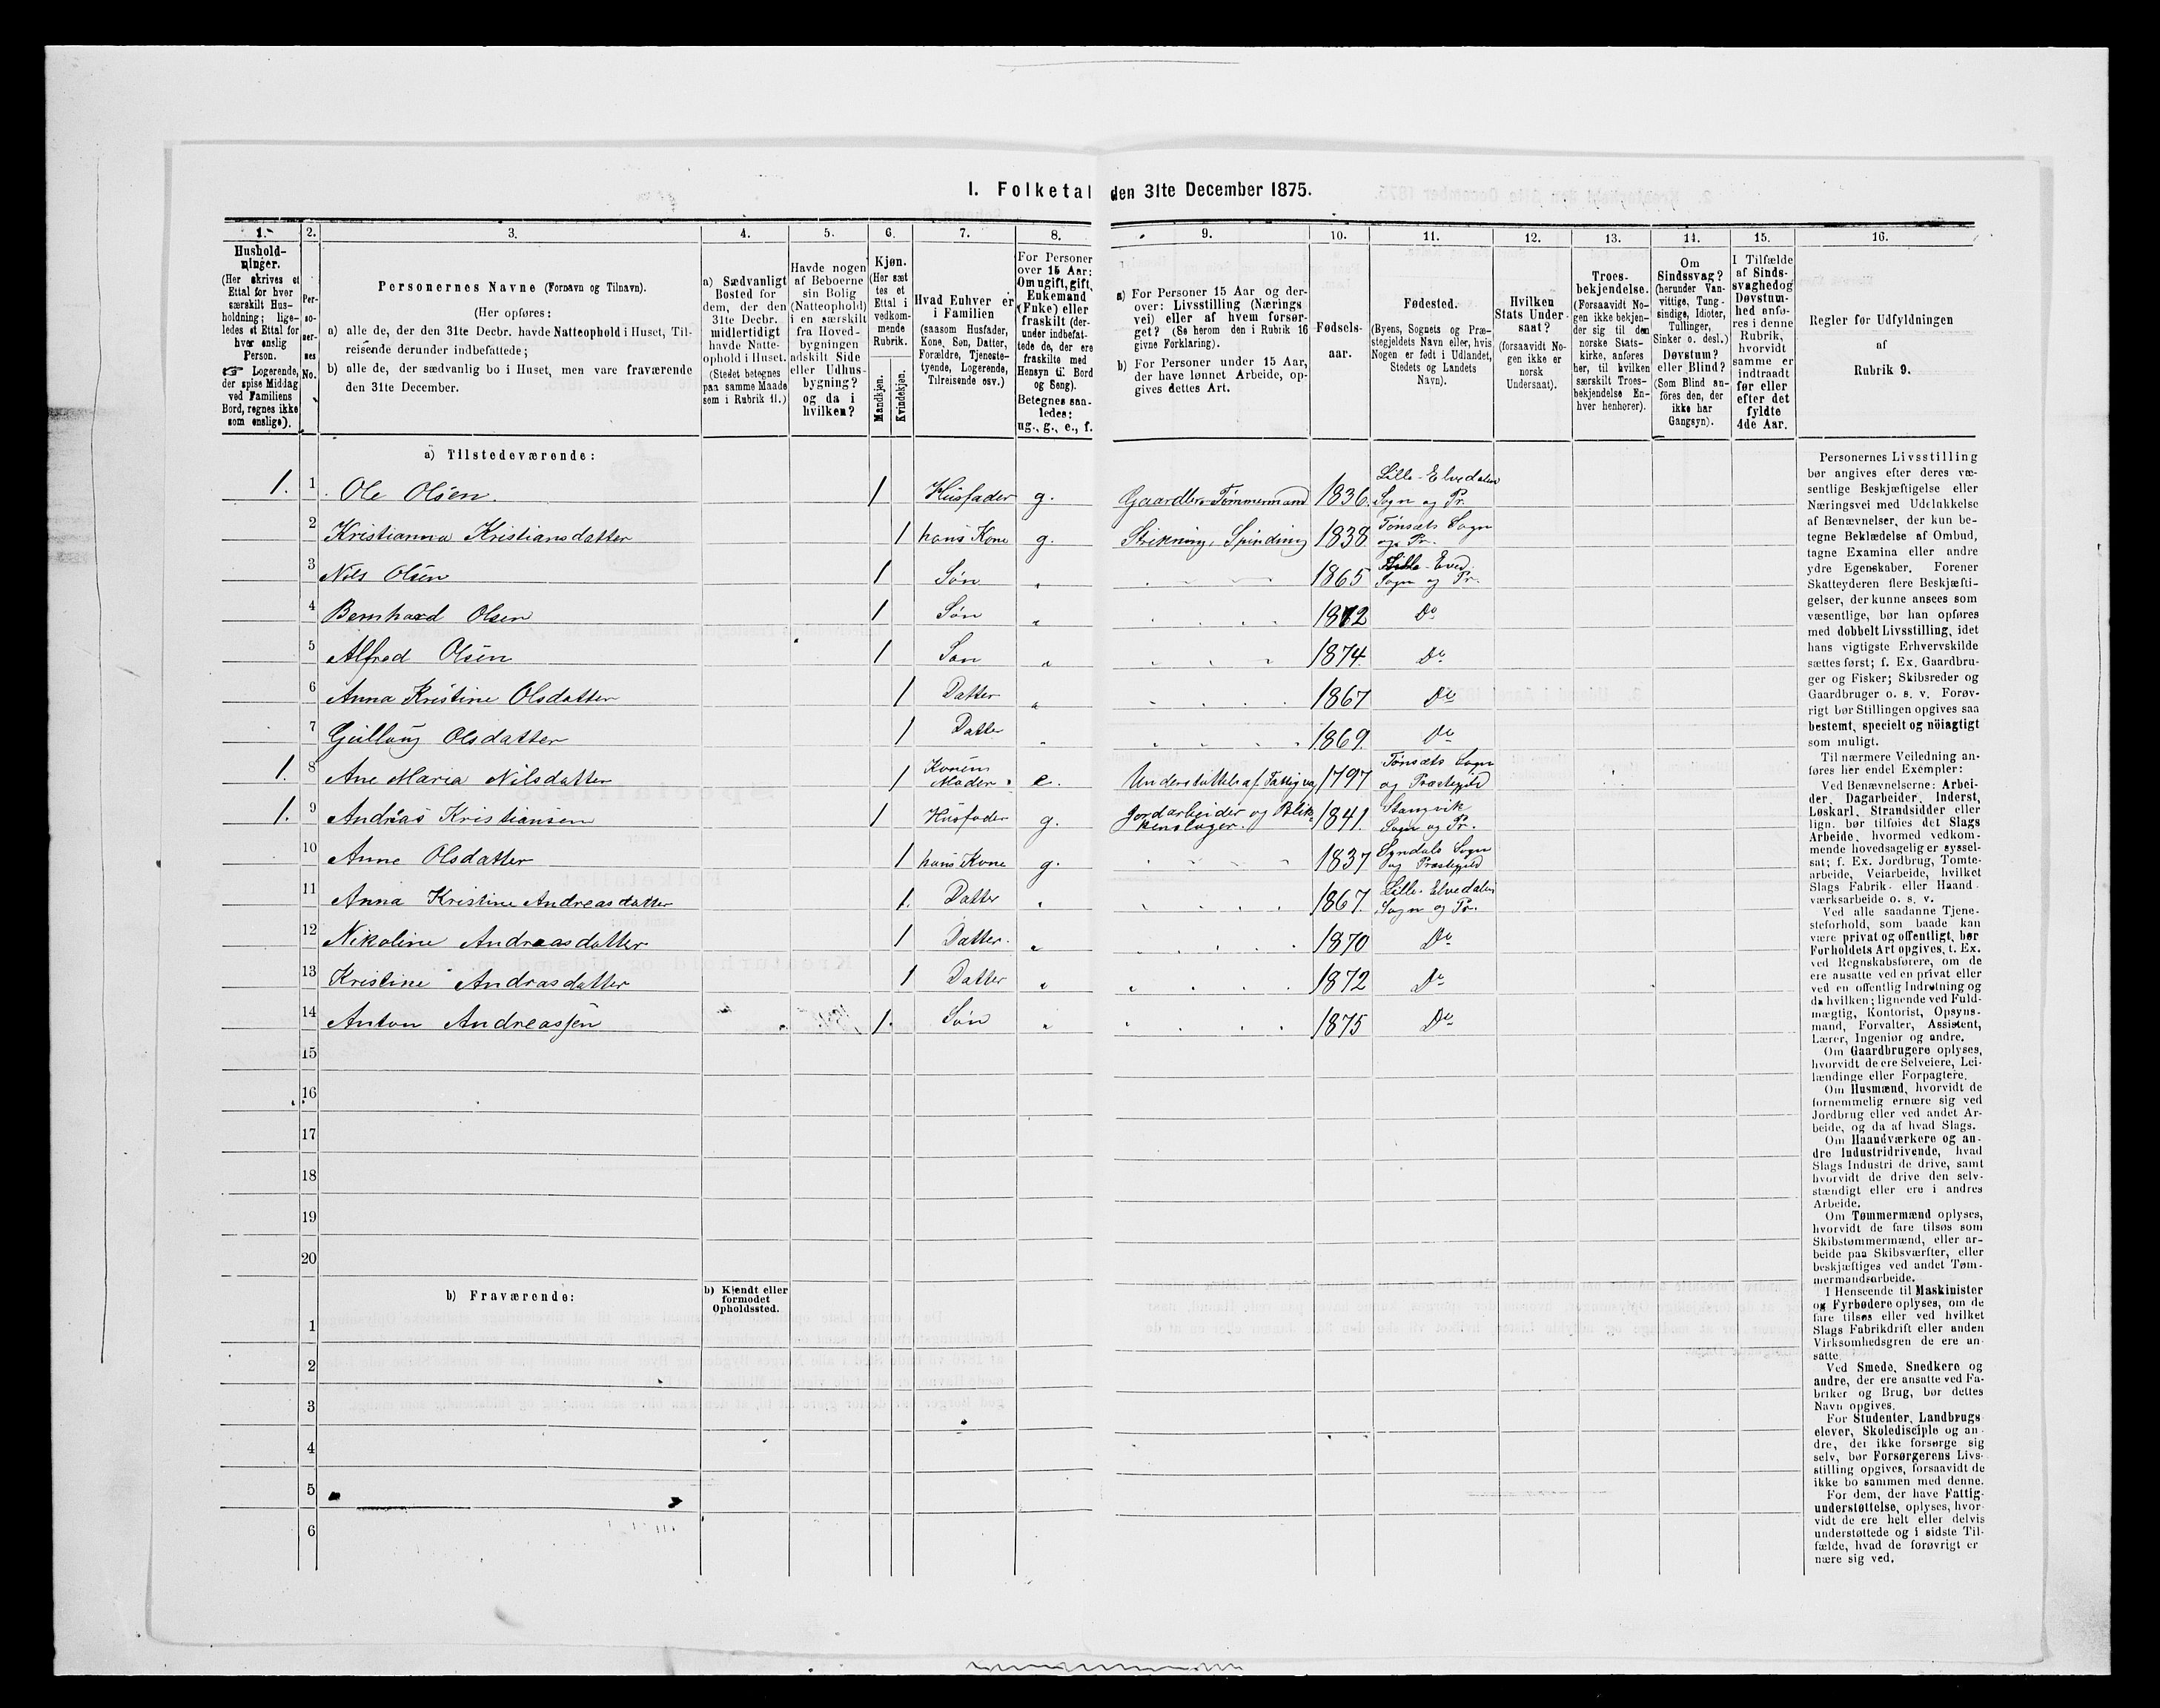 I. Folketal den 31te December 1875.
1. 2. 3. 4. 5. 6. 7. 8. 9. 10. 11. 12. 13. 14. 15. 16.
Hushold-
ninger.
(Her skrives et
Ettal for hver
særskilt Hus-
holdning; lige-
ledes et Ettal for
hver enslig
Person.
☞ Logerende,
der spise Middag
ved Familiens
Bord, regnes ikke
som enslige).
Per-
so-
ner-
nes
No.
Personernes Navne (Fornavn og Tilnavn).
(Her opføres:
a) alle de, der den 31te Decbr. havde Natteophold i Huset, Til-
reisende derunder indbefattede;
b) alle de, der sædvanlig bo i Huset, men vare fraværende
den 31te December.
a) Sædvanligt
Bosted for
dem, der den
31te Decbr.
midlertidigt
havde Natte-
ophold i Huset.
(Stedet betegnes
paa samme Maade
som i Rubrik 11.)
Havde nogen
af Beboerne
sin Bolig
(Natteophold)
i en særskilt
fra Hoved-
bygningen
adskilt Side
eller Udhus-
bygning?
og da i
hvilken?
Kjøn.
(Her sæt
tes et
Ettal i
vedkom-
mende
Rubrik.
Mandkjøn.
Kvindekjøn.
Hvad Enhver er
i Familien
(saasom Husfader,
Kone, Søn, Datter,
Forældre, Tjeneste-
tyende, Logerende,
Tilreisende osv.)
For Personer
over 15 Aar:
Om ugift, gift,
Enkemand
(Enke) eller
fraskilt (der-
under indbefat-
tede de, der ere
fraskilte med
Hensyn til Bord
og Seng).
Betegnes saa-
ledes:
ug., g., e., f.
a) For Personer 15 Aar og der-
over: Livsstilling (Nærings
vei) eller af hvem forsør-
get? (Se herom den i Rubrik 16
givne Forklaring).
b) For Personer under 15 Aar,
der have lønnet Arbeide, op-
gives dettes Art.
Fødsels-
aar.
Fødested.
(Byens, Sognets og Præ-
stegjeldets Navn eller, hvis
Nogen er født i Udlandet,
Stedets og Landets
Navn).
Hvilken
Stats Under-
saat?
(forsaavidt No-
gen ikke er
norsk
Undersaat).
Troes-
bekjendelse.
(Forsaavidt No-
gen ikke bekjen-
der sig til den
norske Stats-
kirke, anføres
her, til hvilken
særskilt Troes-
bekjendelse En-
hver henhører).
Om
Sindssvag?
(herunder Van-
vittige, Tung-
sindige, Idioter,
Tullinger,
Sinker o. desl.)
Døvstum?
eller Blind?
(Som Blind an-
föres den, der
ikke har
Gangsyn).
I Tilfælde
af Sinds-
svaghed og
Døvstum-
hed anfø-
res i denne
Rubrik,
hvorvidt
samme er
indtraadt
før eller
efter det
fyldte
4de Aar.
Regler for Udfyldningen
af
Rubrik 9.
a) Tilstedeværende:
1. 1 Ole Olsen. 1 Husfader g. Gaardbr. Tømmermand 1836. Lille-Elvedalen Sogn og Pr.
2 Kristianna Kristiansdatter 1 hans Kone g. Strikning, Spinding 1838 Tønsets Sogn og Pr.
3 Nils Olsen 1 Søn 1865 Lille-Elved. Sogn og Pr.
4 Bernhard Olsen 1 Søn 1872 Do
5 Alfred Olsen 1 Søn 1874. Do
6 Anna Kristine Olsdatter 1 Datter 1867 Do
7 Gullaug Olsdatter 1 Datter 1869. Do
1. 8 Ane Maria Nilsdatter 1 Konens Moder e. Understøttels af Fattigv. 1797 Tønsets Sogn og Præstegjeld
1. 9 Andrias Kristiansen 1 Husfader g. Jordarbeider og Blikkenslager. 1841. Stangvik Sogn og Pr.
10 Anne Olsdatter 1 hans Kone g. 1837 Syndals Sogn og Præstegjeld
11 Anna Kristine Andreasdatter 1. Datter 1867. Lille-Elvedalen Sogn og Pr.
12 Nikoline Andreasdatter 1 Datter. 1870 Do
13 Kristine Andrasdatter 1 Datter 1872 Do
14 Anton Andreassen 1. Søn 1875 Do
15
16
17
18
19
20
b) Fraværende:
b) Kjendt eller
formodet
Opholdssted.
1
2
3
4
5
6
Personernes Livsstilling
bør angives efter deres væ-
sentlige Beskjæftigelse eller
Næringsvei med Udelukkelse
af Benævnelser, der kun be-
tegne Beklædelse af Ombud,
tagne Examina eller andre
ydre Egenskaber. Forener
Skatteyderen flere Beskjæfti-
gelser, der kunne ansees som
væsentlige, bør han opføres
med dobbelt Livsstilling, idet
hans vigtigste Erhvervskilde
sættes først; f. Ex. Gaardbru-
ger og Fisker; Skibsreder og
Gaardbruger o. s. v. Forøv-
rigt bør Stillingen opgives saa
bestemt, specielt og nöiagtigt
som muligt.
Til nærmere Veiledning an-
føres her endel Exempler:
Ved Benævnelserne: Arbei-
der, Dagarbeider, Inderst,
Løskarl, Strandsidder eller
lign. bør tilføies det Slags
Arbeide, hvormed vedkom-
mende hovedsagelig er syssel-
sat; f. Ex. Jordbrug, Tomte-
arbeide, Veiarbeide, hvilket
Slags Fabrik- eller Haand-
værksarbeide o. s. v.
Ved alle saadanne Tjene-
steforhold, som baade kan
være privat og offentligt, bør
Forholdets Art opgives, t. Ex.
ved Regnskabsførere, om de
ere ansatte ved en privat eller
ved en offentlig Indretning og
da hvilken; lignende ved Fuld-
mægtig, Kontorist, Opsyns-
mand, Forvalter, Assistent,
Lærer, Ingeniør og andre.
Om Gaardbrugere oplyses,
hvorvidt de ere Selveiere, Lei-
lændinge eller Forpagtere.
Om Husmænd, hvorvidt de
fornemmelig ernære sig ved
Jordbrug eller ved andet Ar-
beide, og da af hvad Slags.
Om Haandværkere og an-
dre Industridrivende, hvad
Slags Industri de drive, samt
hvorvidt de drive den selv-
stændigt eller ere i andres
Arbeide.
Om Tømmermænd oplyses,
hvorvidt de fare tilsøs som
Skibstømmermænd, eller ar-
beide paa Skibsværfter, eller
beskjæftiges ved andet Tøm-
mermandsarbeide.
I Henseende til Maskinister
og Fyrbødere oplyses, om de
fare tilsøs eller ved hvilket
Slags Fabrikdrift eller anden
Virksomhedsgren de ere an-
satte.
Ved Smede, Snedkere og
andre, der ere ansatte ved Fa-
briker og Brug, bør dettes
Navn opgives.
For Studenter, Landbrugs-
elever, Skoledisciple og an-
dre, der ikke forsørge sig
selv, bør Forsørgerens Livs-
stilling opgives, forsaavidt de
ikke bo sammen med denne.
For dem, der have Fattig-
understøttelse, oplyses, hvor-
vidt de ere helt eller delvis
understøttede og i sidste Til-
fælde, hvad de forøvrigt er-
nære sig ved.